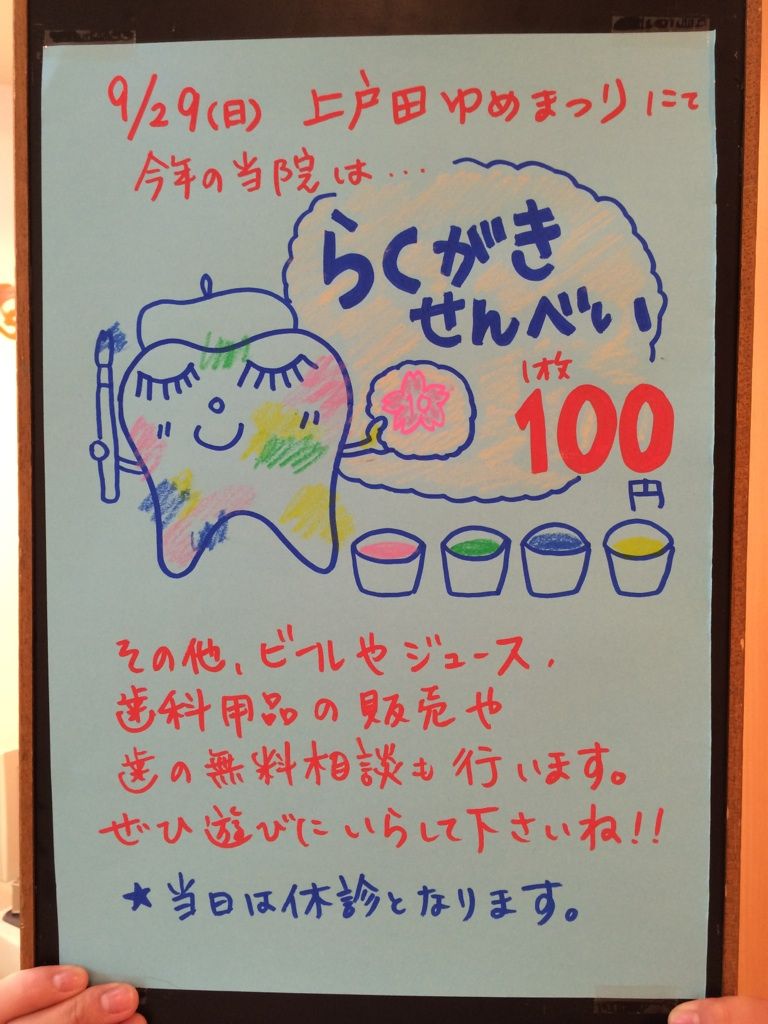 9/29(日) 上戸田ゆめまつりにて
今年の当院は…
らくがき
せんべい
1枚
100
円
その他、ビールやジュース、
歯科用品の販売や
歯の無料相談も行います。
ぜひ遊びにいらして下さいね!!
★当日は休診となります。